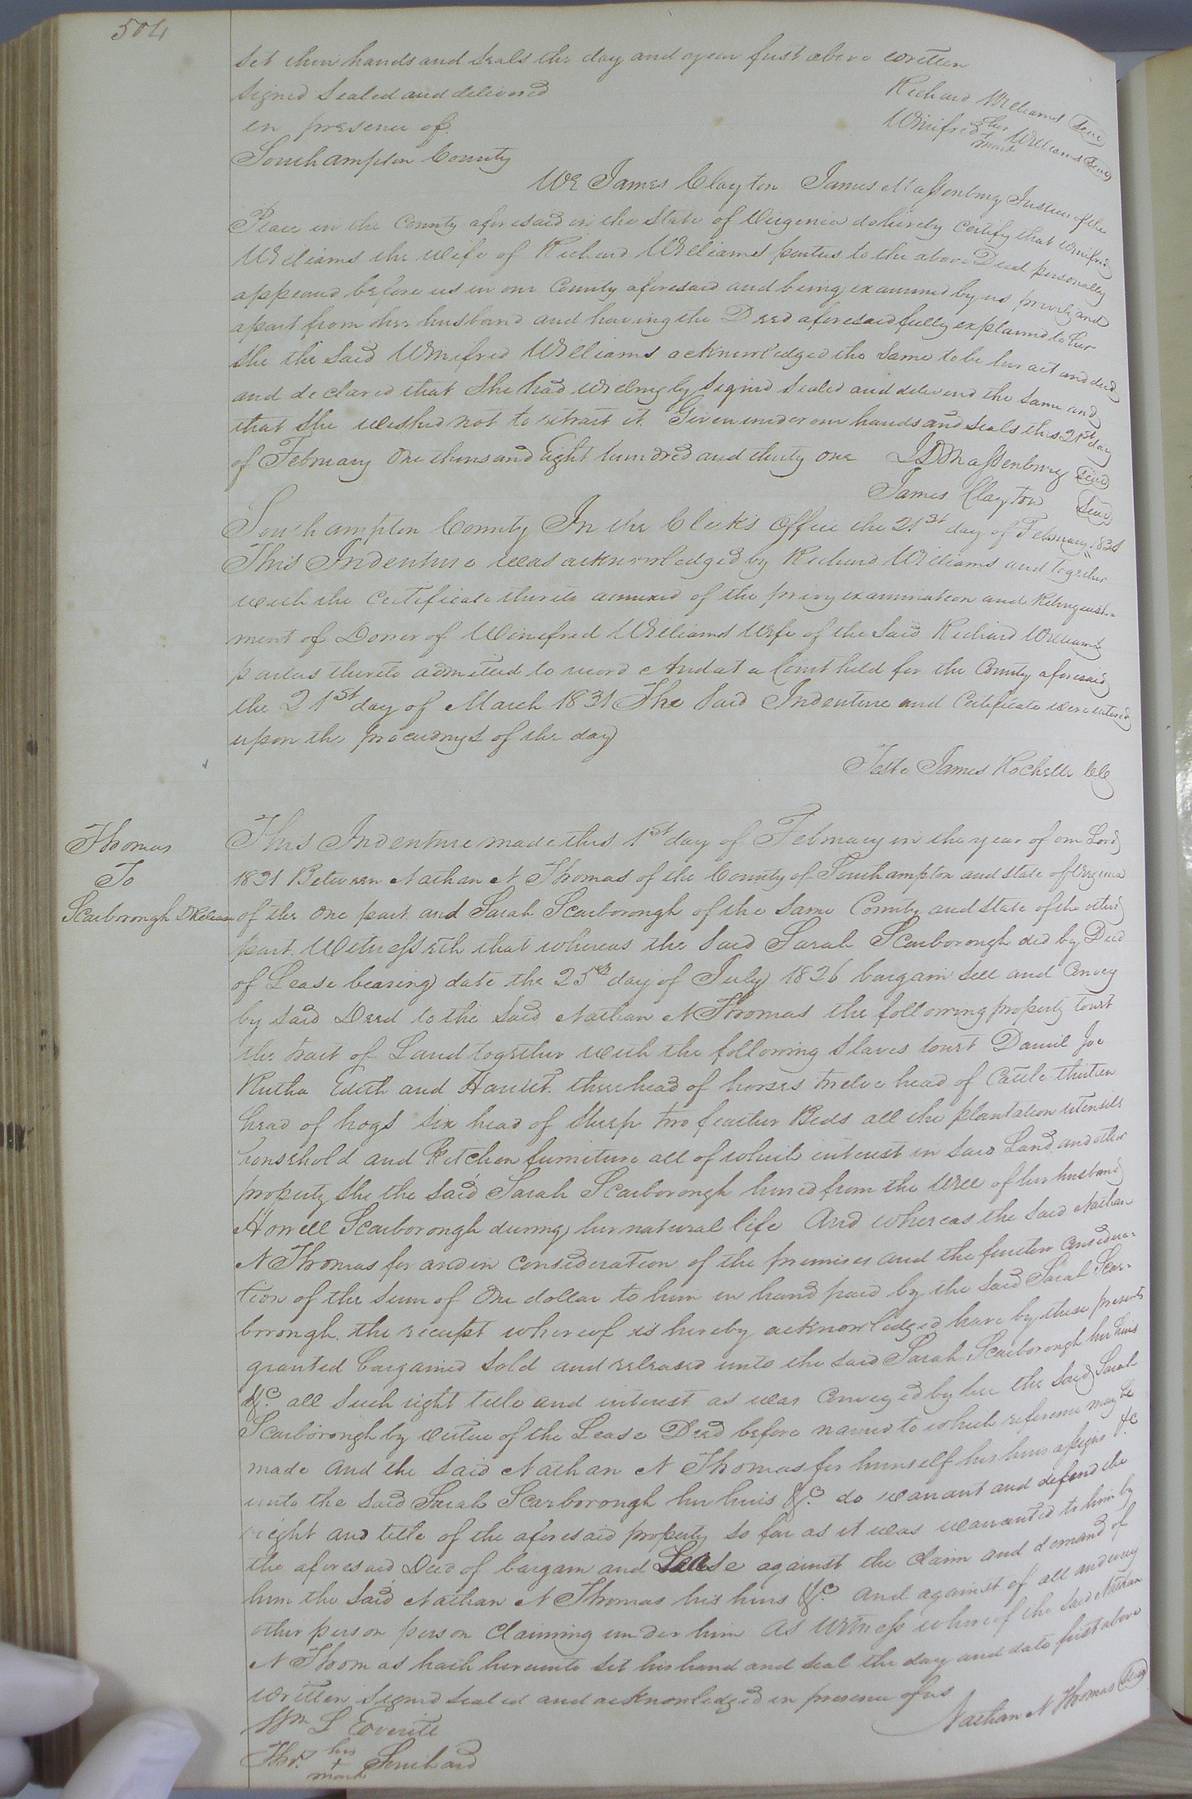 504
set their hands and seals the day and year first above written
Signed Sealed and delivered
in presence of
Richard Williams Seal
Winifred her + mark Williams Seal
Southampton County
We James Clayton James Massenburg Justices of the
Peace in the County aforesaid in the State of Virginia do hereby certify that Winifred
Williams the wife of Richard Williams parties to the above Deed personally
appeared before us in our County aforesaid and being examined by us privily and
apart from her husband and having the Deed aforesaid fully explained to her
She the said Winifred Williams acknowledged the same to be her act and deed
and declared that She had willingly Signed Sealed and delivered the Same and
that She wished not to retract it. Given under our hands and Seals this 21st day
of February One thousand Eight hundred and thirty one J D Massenburg Seal
James Clayton Seal
Southampton County In the Clerks Office the 21st day of February 1831
This Indenture was acknowledged by Richard Williams and together
with the Certificate thereto annexed of the privy examination and Relinquish-
ment of Dower of Winifred Williams Wife of the Said Richard Williams
parties thereto admitted to record And at a Court held for the County aforesaid
the 21st day of March 1831 The Said Indenture and Certificate were entered
upon the proceedings of the day
Teste James Rochelle CC
Thomas
To
Scarborough D Release
This Indenture made this 1st day of February in the year of our Lord
1831 Between Nathan N Thomas of the County of Southampton and State of Virginia
of the One part and Sarah Scarborough of the Same County and State of the other
part Witnesseth that whereas the Said Sarah Scarborough did by Deed
of Lease bearing date the 25th day of July 1826 bargain Sell and Convey
by Said Deed to the Said Nathan N Thomas the following property towit
the tract of Land together with the following Slaves towit Daniel Joe
Rutha Edith and Harriet three head of horses twelve head of Cattle thirteen
head of hogs Six head of Sheep two feather Beds all the plantation utensils
household and Kitchen furniture all of which interest in Said Land and other
property She the Said Sarah Scarborough from the Will of her husband
Howell Scarborough during her natural life And whereas the Said Nathan
N Thomas for and in Consideration of the premises and the further Considera-
tion of the Sum of One dollar to him in hand paid by the Said Sarah Scar-
borough the receipt whereof is hereby acknowledged have by these presents
granted bargained Sold and released unto the Said Sarah Scarborough her heirs
&c. all Such right title and interest as was Conveyed by her the Said Sarah
Scarborough by virtue of the Lease Deed before named to which reference may be
made And the Said Nathan N Thomas for himself his heirs assigns &c
unto the Said Sarah Scarborough her heirs &c. do warrant and defend the
right and title of the aforesaid property So far as it was warranted to him by
the aforesaid Deed of bargain and Lease against the Claim and demand of
him the Said Nathan N Thomas his heirs &c. And against of all and every
other person person Claiming under him As Witness whereof the Said Nathan
N Thomas hath hereunto Set his hand and Seal the day and date first above
written Signed Sealed and acknowledged in presence of us
Nathan N Thomas Seal
Wm L Everitt
Thos. his + mark